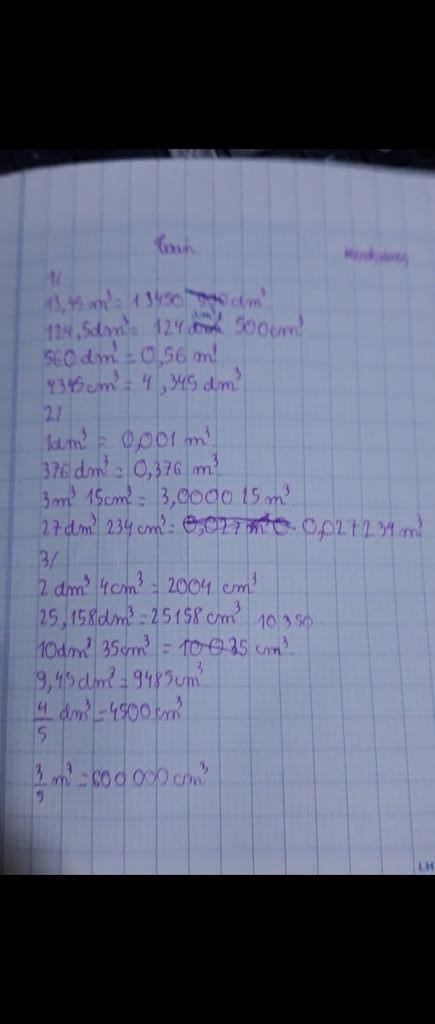 Toán
1/
13,45 m³ = 13450 dm³
124,5dm³ = 124 dm³ 500cm³
560 dm³ = 0,56 m³
4345cm³ = 4,345 dm³
2/
1dm³ = 0,001 m³
376 dm³ = 0,376 m³
3m³ 15cm³ = 3,000015 m³
27dm³ 234cm³ = 0,027m³ 0. 0,027234 m³
3/
2 dm³ 4cm³ = 2004 cm³
25,158dm³ = 25158 cm³ 10350
10dm³ 35cm³ = 10035 cm³
9,45dm³ = 9485cm³
4/5 dm³ = 4500cm³
3/5 m³ = 600 000 cm³
LH